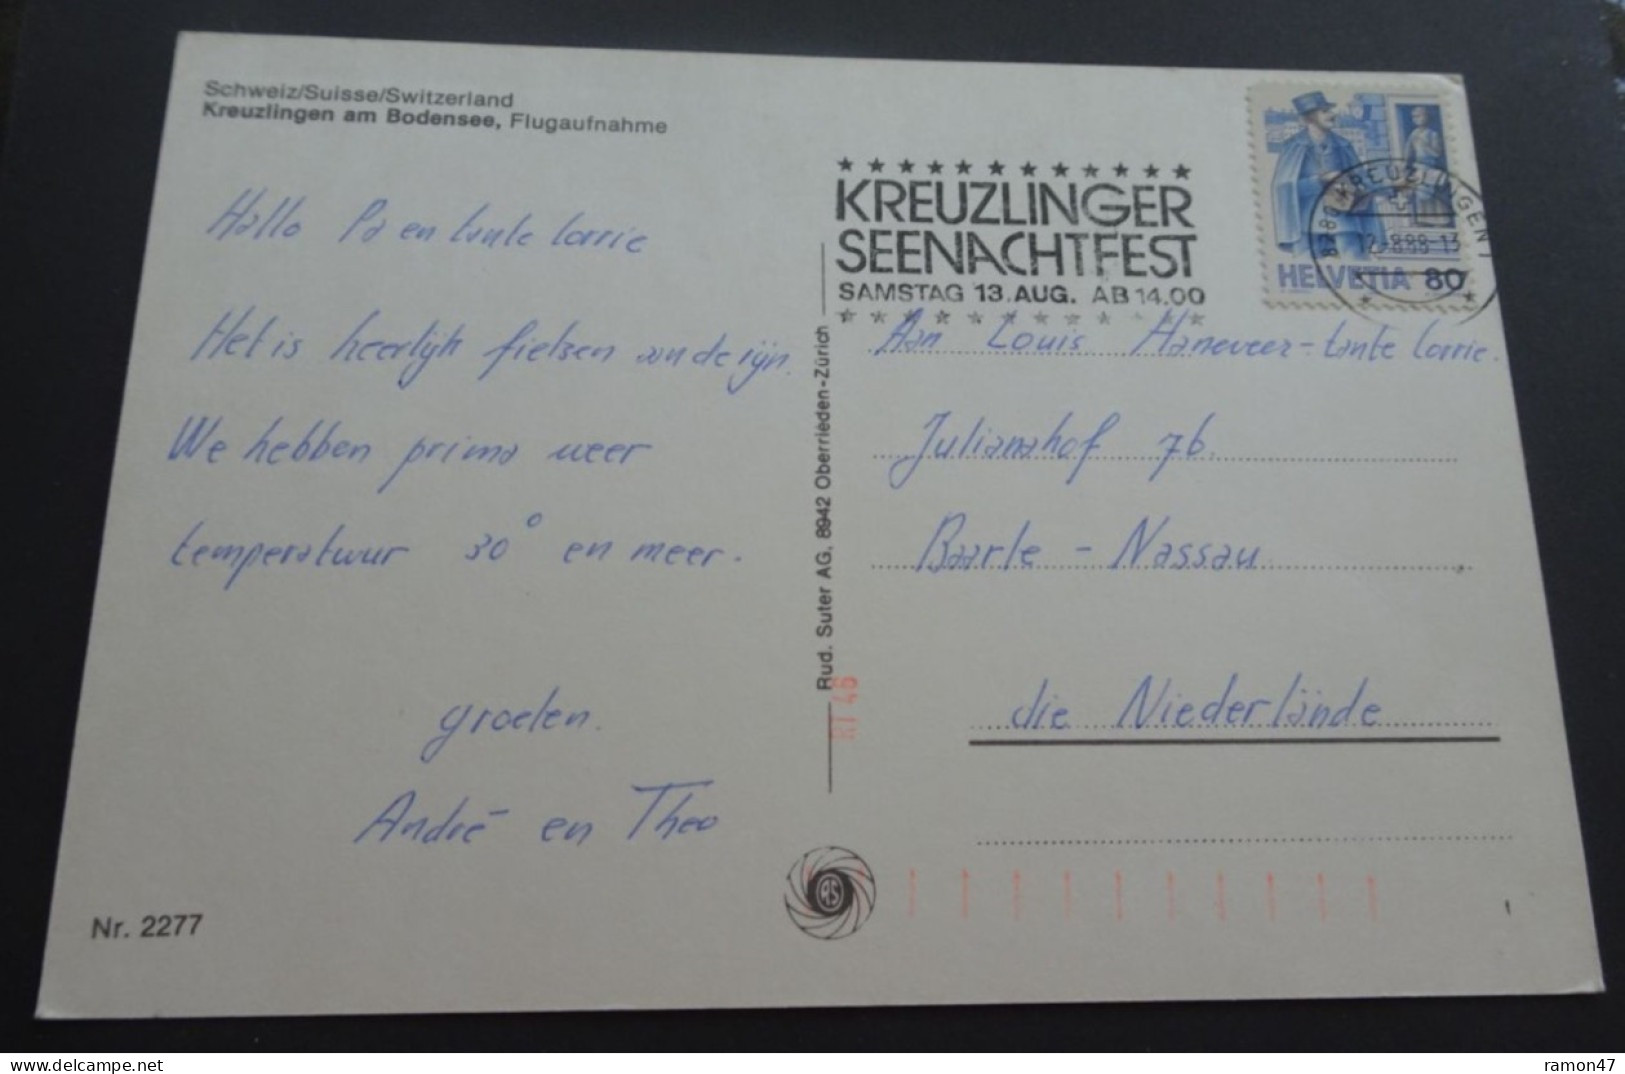 Schweiz/Suisse/Switzerland
Kreuzlingen am Bodensee, Flugaufnahme
Hallo Pa en tante Corrie
Het is heerlijk fietsen aan de rijn.
We hebben prima weer
temperatuur 30° en meer.
groeten.
André en Theo
Nr. 2277
Rud. Suter AG, 8942 Oberrieden-Zürich
KREUZLINGER
SEENACHTFEST
SAMSTAG 13. AUG. AB 14.00
8280 KREUZLINGEN 1
12.-8.88-13
HELVETIA 80
Aan Louis Haneveer-tante Corrie.
Julianahof 7b.
Baarle-Nassau
die Niederlände
RS
delcampe.net
ramon47